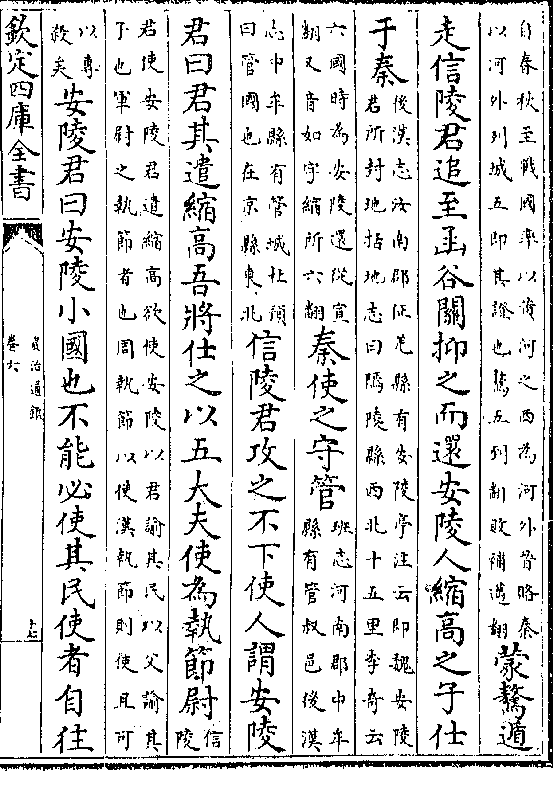 自春秋至戰國率以濱河之西為河外晉賂秦
以河外列城五即其證也驁五到翻敗補邁翻
蒙驁遁
走信陵君追至函谷關抑之而還安陵人縮高之子仕
于秦
後漢志汝南郡征羌縣有安陵亭注云即魏安陵
君所封地括地志曰鄢陵縣西北十五里李奇云
六國時為安陵還從宣
翻又音如字縮所六翻
秦使之守管
班志河南郡中牟
縣有管叔邑後漢
志中牟縣有管城杜預
曰管國也在京縣東北
信陵君攻之不下使人謂安陵
君曰君其遣縮高吾將仕之以五大夫使為執節尉
信
陵
君使安陵君遣縮高欲使安陵以君諭其民以父諭其
子也軍尉之執節者也周執節以使漢執節則使且可
以專
殺矣
安陵君曰安陵小國也不能必使其民使者自往
欽定四庫全書
資治通鑑
卷六
十七